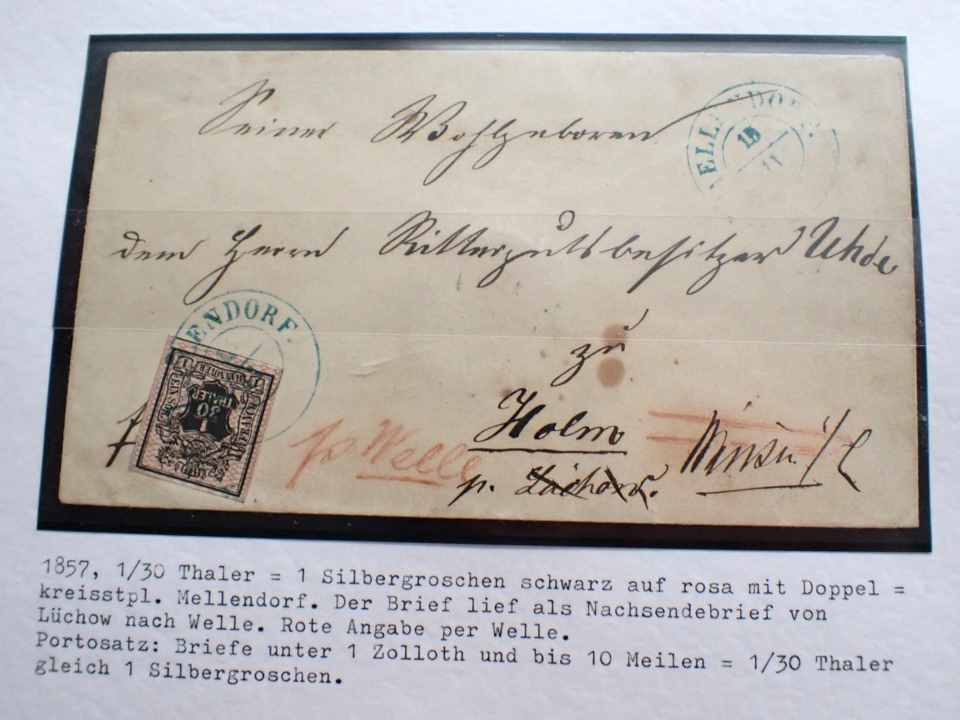 Seiner Wohlgeboren
ELLENDORF.
15
11
dem Herrn Rittergutsbesitzer Uhde
ENDORF.
zu
Holm
p. Lüchow.
p Welle
1
30
THALER
1857, 1/30 Thaler = 1 Silbergroschen schwarz auf rosa mit Doppel =
kreisstpl. Mellendorf. Der Brief lief als Nachsendebrief von
Lüchow nach Welle. Rote Angabe per Welle.
Portosatz: Briefe unter 1 Zolloth und bis 10 Meilen = 1/30 Thaler
gleich 1 Silbergroschen.